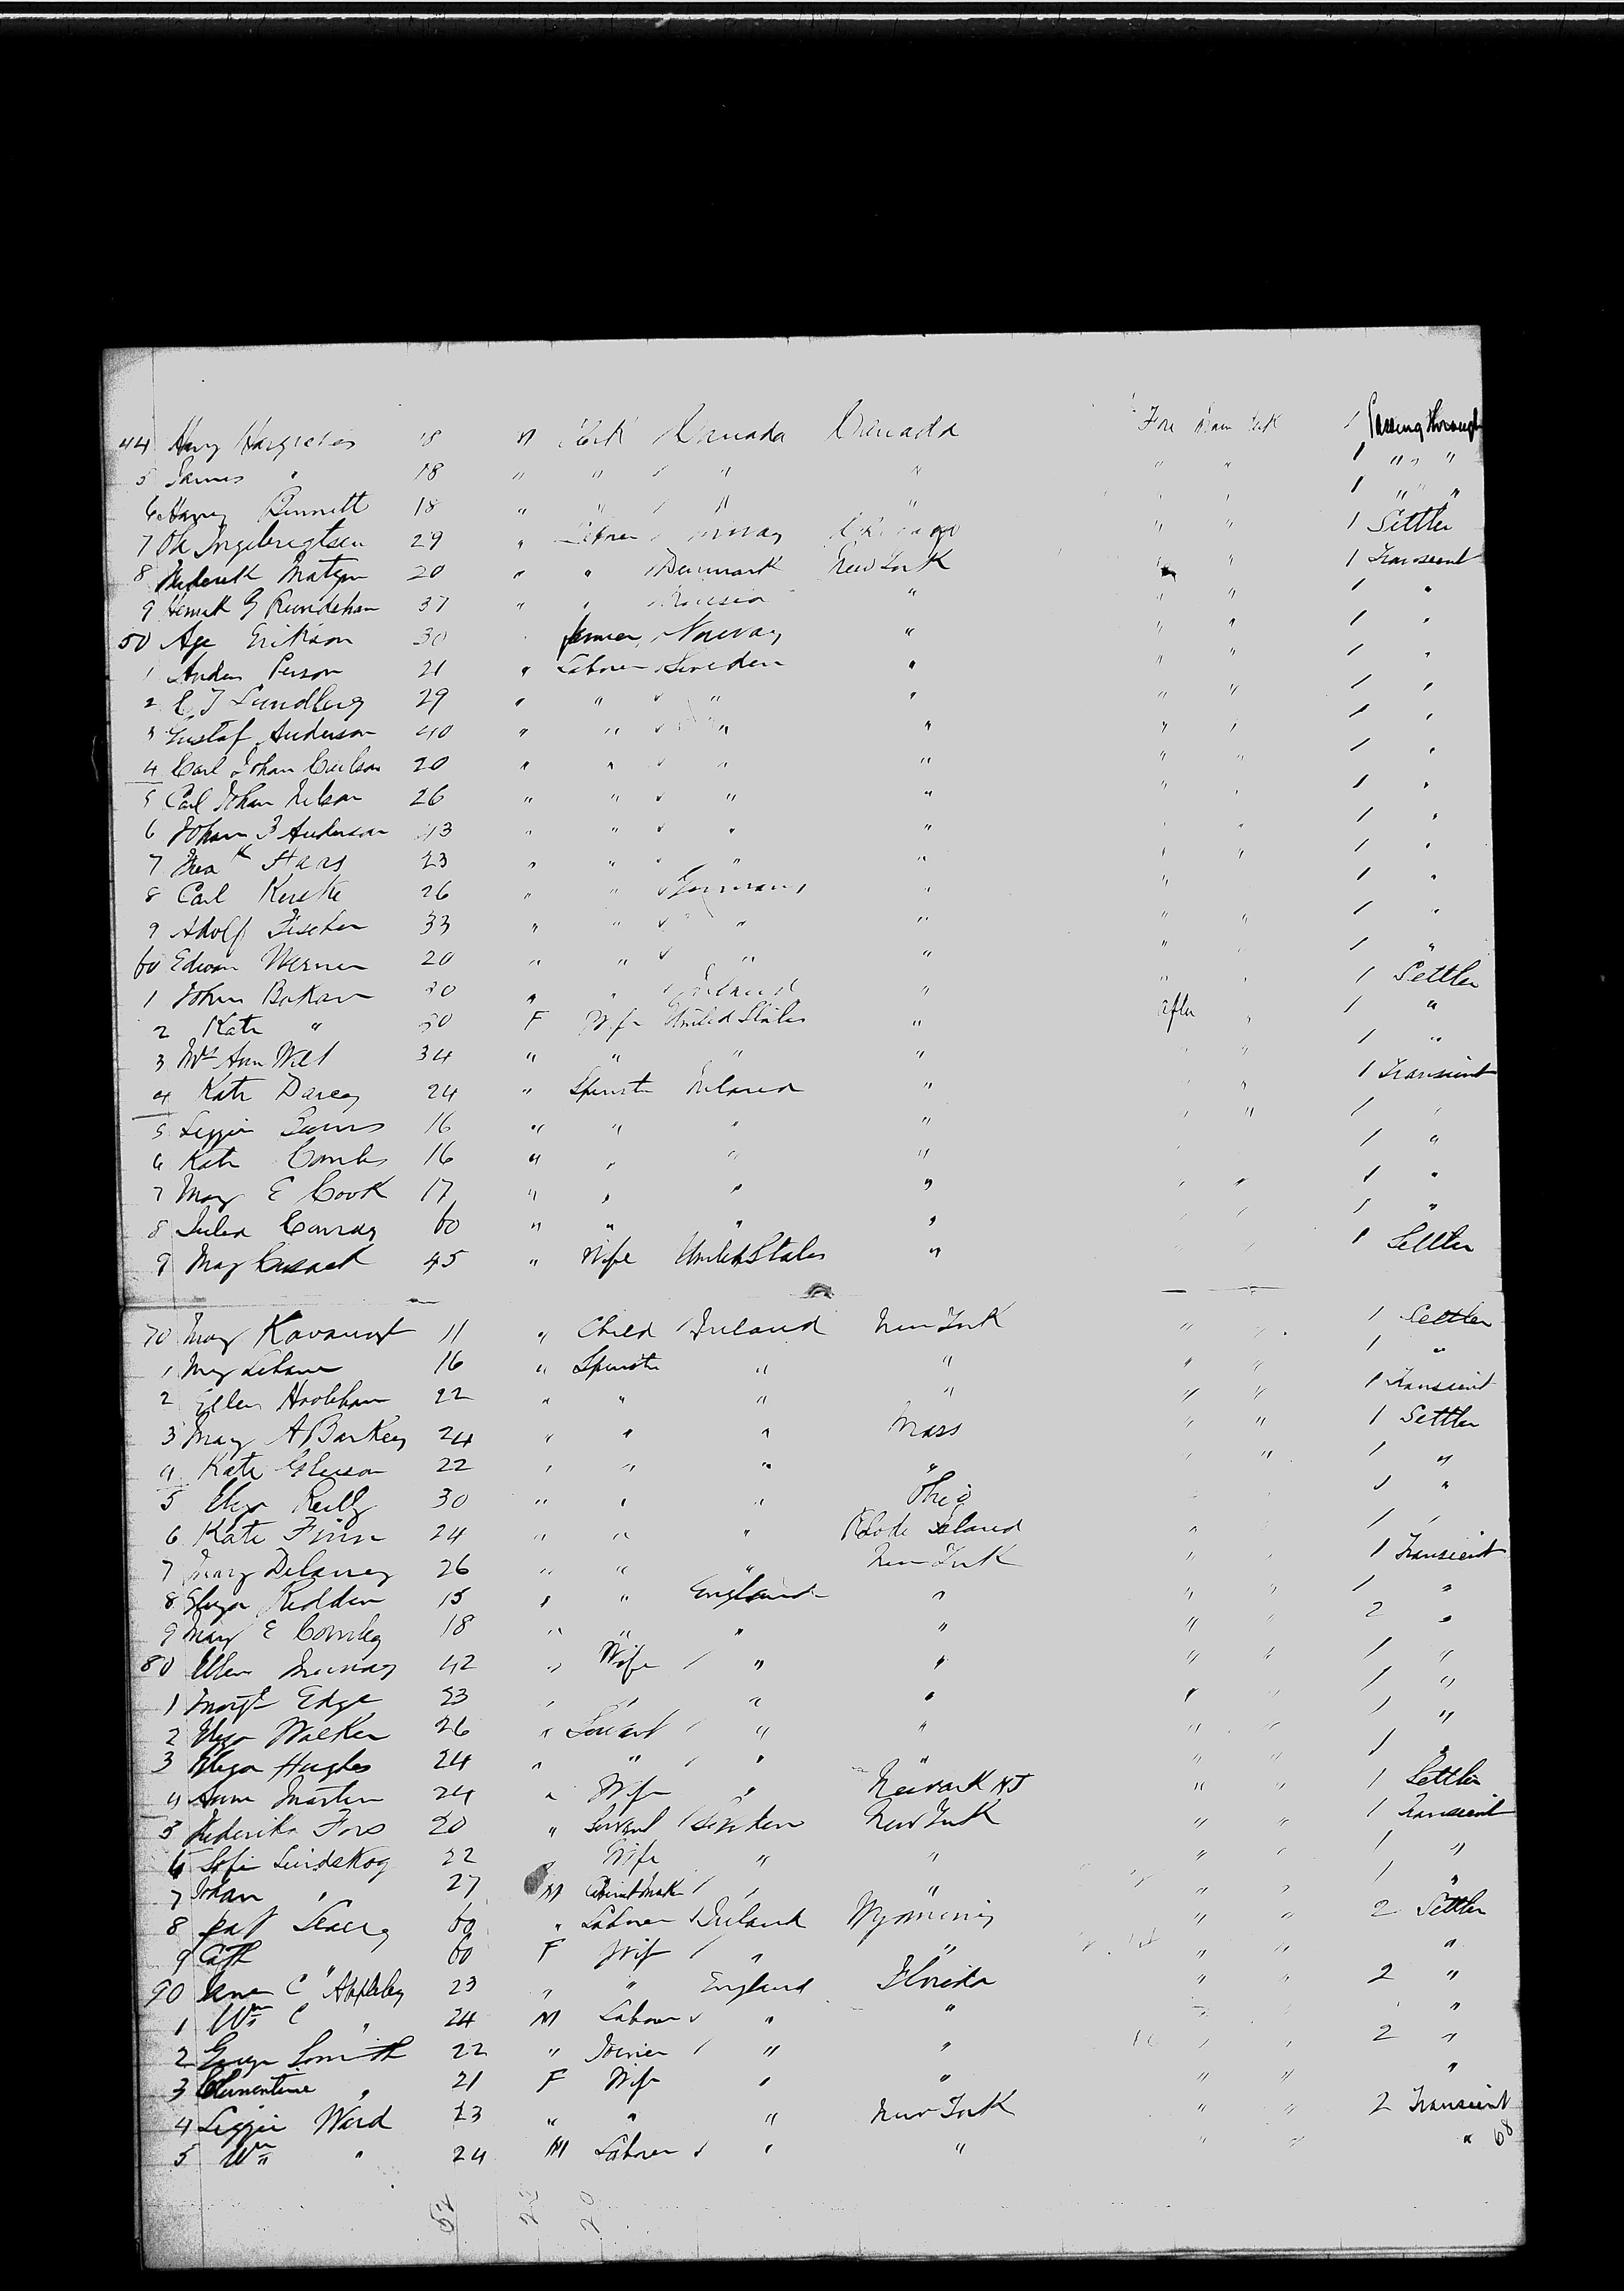 44 Harry Hargreaves 18 M Clerk Canada Canada Fore Main Deck 1 Passing through
5 James " 18 " " " " " " 1 " " "
6 Harry Bennett 18 " " " " " " 1 " " "
7 Ole Ingebrigtsen 29 " Laborer Norway Chicago " " 1 Settler
8 Frederick 20 " " Denmark New York " " 1 Transient
9 37 " " Russia " " " 1 "
50 Age Erikson 30 Farmer Norway " " " 1 "
1 Anders Person 21 " Laborer Sweden " " " 1 "
2 C J Lundberg 29 " " " " " " 1 "
3 Gustaf Anderson 40 " " " " " " 1 "
4 Carl Johan Carlson 20 " " " " " " 1 "
5 Carl Johan Nelson 26 " " " " " " 1 "
6 Johan F Anderson 43 " " " " " " 1 "
7 Staas 23 " " " " " " 1 "
8 Carl 26 " " Germany " " 1 "
9 Adolf Fischer 33 " " " " " " 1 "
60 Werner 20 " " " " " 1 "
1 John 30 " " Ireland " " " 1 Settler
2 Kate " 30 F Wife United States " After " 1 "
3 Mrs Ann 34 " " " " " " 1 "
4 Kate Darcy 24 " Spinster Ireland " " 1 Transient
5 Lizzie 16 " " " " " " 1 "
6 Kate 16 " " " " 1 "
7 Mary E Cook 17 " " " " " " 1 "
8 Julia Conroy 60 " " " " " " 1 "
9 Mary Cusack 45 " Wife United States " 1 Settler
70 Mary Kavanagh 11 " Child Ireland New York " " 1 Settler
1 Mary Lehane 16 " Spinster " " " " 1 "
2 Ellen Hoolihan 22 " " " " " " 1 Transient
3 Mary A Barkey 24 " " " Mass " " 1 Settler
4 Kate Gleeson 22 " " " " " " 1 "
5 Eliza Reilly 30 " " " Ohio 1 "
6 Kate Finn 24 " " " Rhode Island " 1 "
7 Mary Delaney 26 " " " New York " " 1 Transient
8 Eliza Redden 15 " " England " " " 1 "
9 Mary E 18 " " " " " " 2 "
80 Ellen Murray 42 " Wife " " " " 1 "
1 Margt Edge 23 " " " " " " 1 "
2 Eliza Walker 26 " Servant " " " " 1 "
3 Eliza Hughes 24 " " " " " " 1 "
4 Anne Martin 24 " Wife " Newark NJ " " 1 Settler
5 Frederika Fors 20 " Servant Sweden New York " " 1 Transient
6 Sofie Lindskog 22 " Wife " " " " 1 "
7 Johan " 27 M Cabinet Maker " " " " 1 "
8 Pat 60 " Laborer Ireland Wyoming " " 2 Settler
9 Cath " 60 F Wife " " " " "
90 C Appleby 23 " " England Florida " " 2 "
1 Wm C " 24 M Laborer " " " "
2 George Smith 22 " Joiner " " " " 2 "
3 Clementine " 21 F Wife " " " " "
4 Lizzie Ward 23 " " " New York " " 2 Transient
5 Wm " 24 M Laborer " " " " " 68